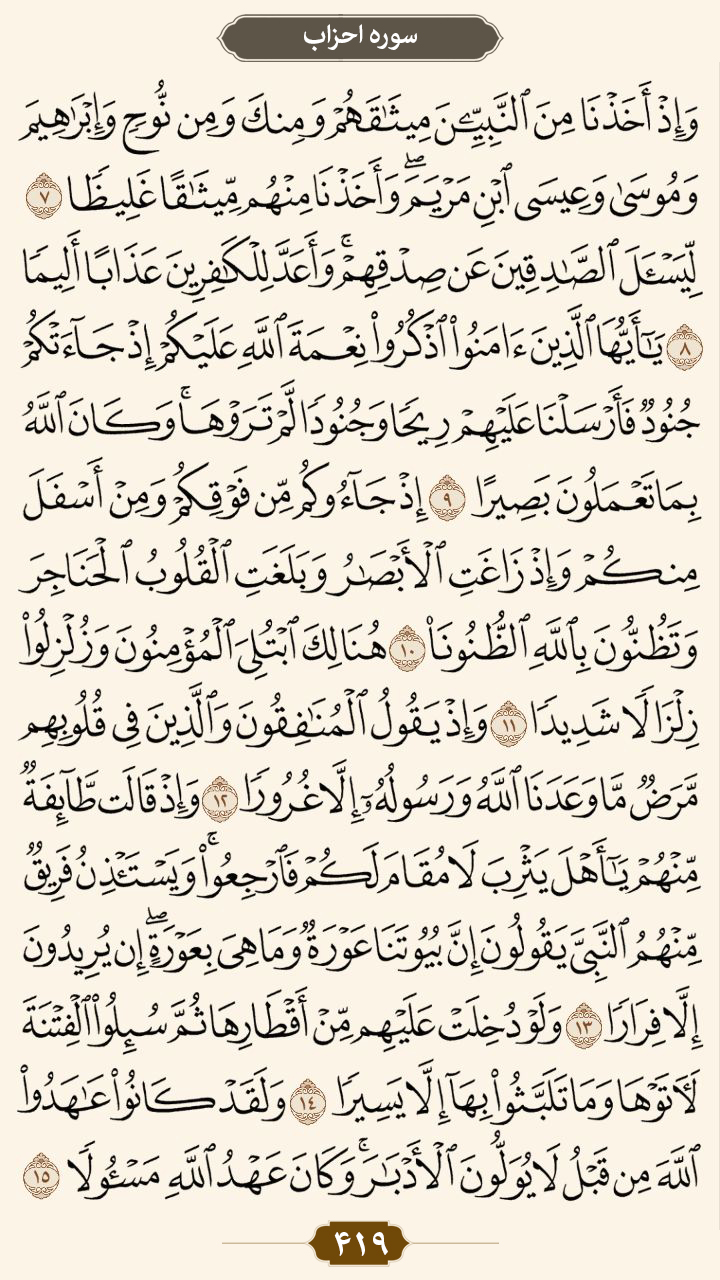 سوره احزاب
وَإِذْ أَخَذْنَا مِنَ ٱلنَّبِيِّـۧنَ مِيثَٰقَهُمْ وَمِنكَ وَمِن نُّوحٍ وَإِبْرَٰهِيمَ
وَمُوسَىٰ وَعِيسَى ٱبْنِ مَرْيَمَ ۖ وَأَخَذْنَا مِنْهُم مِّيثَٰقًا غَلِيظًا ٧
لِّيَسْـَٔلَ ٱلصَّٰدِقِينَ عَن صِدْقِهِمْ ۚ وَأَعَدَّ لِلْكَٰفِرِينَ عَذَابًا أَلِيمًا
٨ يَٰٓأَيُّهَا ٱلَّذِينَ ءَامَنُوا۟ ٱذْكُرُوا۟ نِعْمَةَ ٱللَّهِ عَلَيْكُمْ إِذْ جَآءَتْكُمْ
جُنُودٌ فَأَرْسَلْنَا عَلَيْهِمْ رِيحًا وَجُنُودًا لَّمْ تَرَوْهَا ۚ وَكَانَ ٱللَّهُ
بِمَا تَعْمَلُونَ بَصِيرًا ٩ إِذْ جَآءُوكُم مِّن فَوْقِكُمْ وَمِنْ أَسْفَلَ
مِنكُمْ وَإِذْ زَاغَتِ ٱلْأَبْصَٰرُ وَبَلَغَتِ ٱلْقُلُوبُ ٱلْحَنَاجِرَ
وَتَظُنُّونَ بِٱللَّهِ ٱلظُّنُونَا۠ ١٠ هُنَالِكَ ٱبْتُلِيَ ٱلْمُؤْمِنُونَ وَزُلْزِلُوا۟
زِلْزَالًا شَدِيدًا ١١ وَإِذْ يَقُولُ ٱلْمُنَٰفِقُونَ وَٱلَّذِينَ فِى قُلُوبِهِم
مَّرَضٌ مَّا وَعَدَنَا ٱللَّهُ وَرَسُولُهُۥٓ إِلَّا غُرُورًا ١٢ وَإِذْ قَالَت طَّآئِفَةٌ
مِّنْهُمْ يَٰٓأَهْلَ يَثْرِبَ لَا مُقَامَ لَكُمْ فَٱرْجِعُوا۟ ۚ وَيَسْتَـْٔذِنُ فَرِيقٌ
مِّنْهُمُ ٱلنَّبِىَّ يَقُولُونَ إِنَّ بُيُوتَنَا عَوْرَةٌ وَمَا هِىَ بِعَوْرَةٍ ۖ إِن يُرِيدُونَ
إِلَّا فِرَارًا ١٣ وَلَوْ دُخِلَتْ عَلَيْهِم مِّنْ أَقْطَارِهَا ثُمَّ سُئِلُوا۟ ٱلْفِتْنَةَ
لَـَٔاتَوْهَا وَمَا تَلَبَّثُوا۟ بِهَآ إِلَّا يَسِيرًا ١٤ وَلَقَدْ كَانُوا۟ عَٰهَدُوا۟
ٱللَّهَ مِن قَبْلُ لَا يُوَلُّونَ ٱلْأَدْبَٰرَ ۚ وَكَانَ عَهْدُ ٱللَّهِ مَسْـُٔولًا ١٥
۴۱۹